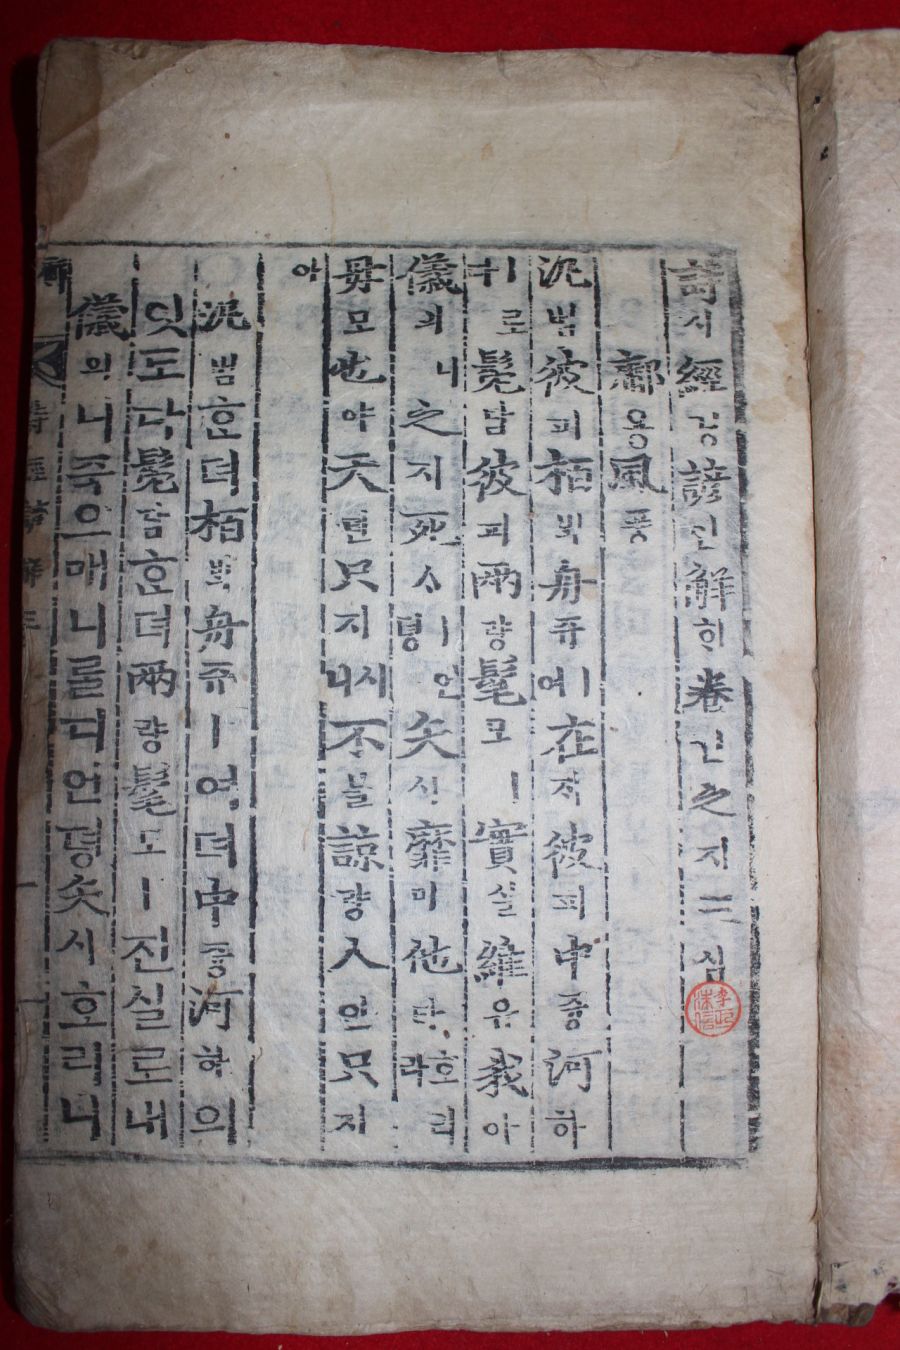 詩시經경諺언解ᄒᆡ卷권之지三삼
鄘용風풍
汎범彼피栢ᄇᆡᆨ舟쥬ㅣ여在ᄌᆡ彼피中듕河하
ㅣ로다髧담彼피兩량髦모ㅣ實실維유我아
儀의니之지死ᄉᆞㅣ언뎡矢시靡미他타호리라
母모也야天텬只지시니不블諒량人인只지
아
汎범ᄒᆞᆫ뎌栢ᄇᆡᆨ舟쥬ㅣ여뎌中듕河하의
잇도다髧담ᄒᆞᆫ뎌兩량髦모ㅣ진실로내
儀의니죽으매니를디언뎡矢시호리니
詩經諺解三